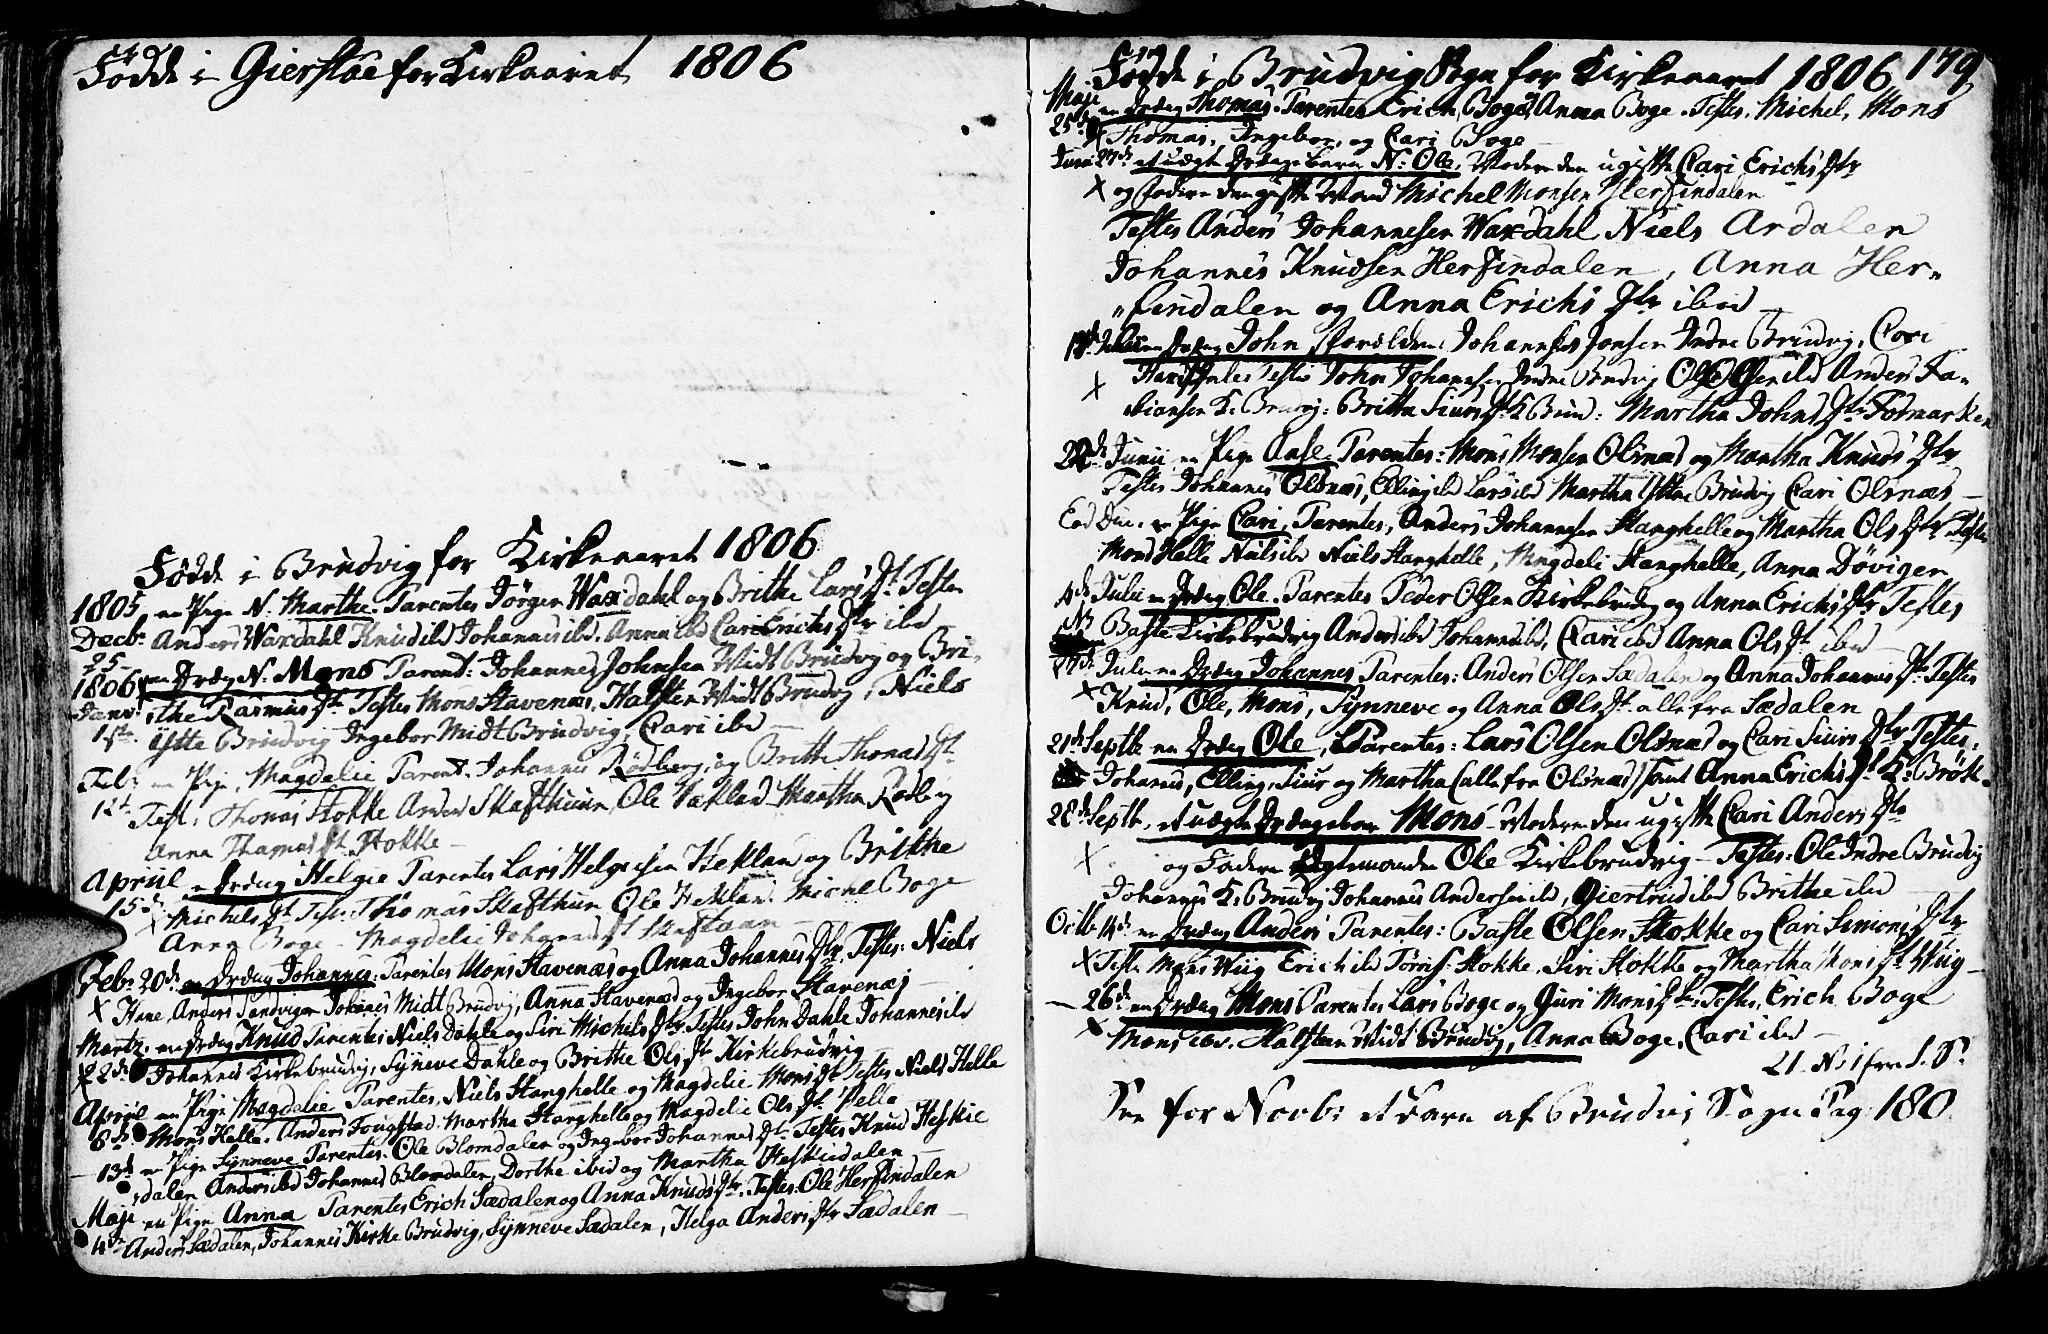 Fødde i Gierstae for Kirkeaaret 1806
Fødde i Brudvig for Kirkeaaret 1806
1805 en Pige N. Marthe. Parentes Jørgen Waxdahl og Brithe Lars Dt. Testes
Decbr. Anders Waxdahl Knud ibd Johannes ibd. Anna ibd Cari Erichs Dtr ibd
25
1806 en Dreng N. Mons Parent: Johannes Johnsen Midt Brudvig og Bri-
Janv: the Rasmus Dt. Testes Mons Stavenæs, Halsten Midt Brudvig, Niels
1ste Ystte Brudvig Ingebor Midt Brudvig, Cari ibd
Feb: en Pige, Magdelie Parent. Johannes Rødberg, og Britte Thomas Dt.
12t. Test. Thomas Stokke Anders Skafthuun, Ole Martha Rødb.g
Anna Thomas Dt Stokke
Apriil en Dreng Helgie Parentes Lars Helgesen Heklan og Brithe
15d. Michels Dt. Test. Thomas Skafthun Ole Heklan. Michel Boge
Anna Boge - Magdelie Johannes Dt
Febr. 20d. en Dreng Johannes: Parentes Mons Stavenæs og Anna Johannes Dtr. Testes: Niels
X Hane Anders Sandvigen Johanes Midt Brudvig, Anna Stavenæs og Ingebor Stavenæs
Martz. en Dreng Knud Parentes Niels Dahle og Siri Michels Dtr. Testes John Dahle Johannes ibd
22d. Johannes Kirkebrudvig, Synneve Dahle og Brithe Ols Dtr Kirkebrudvig
Apriil en Pige Magdelie Parentes. Niels Stanghelle og Magdelie Mons Dt. Testes Niels Helle
6d. Mons Helle. Anders Fougstad. Martha Stanghelle og Magdelie Ols Dt. Helle
13d. en Pige Synneve Parentes: Ole Blomdalen og Ingebor Johannes Dtr Testes Knud Heskie
dalen Anders ibd Johannes Blomdalen, Dorthe ibid og Martha Heskiedalen
Maji en Pige Anna Parentes Erich Sædalen og Anna Knuds Dtr. Testes: Ole Herfindalen
4d. Anders Sædalen, Johannes Kirke Brudvig, Synneve Sædalen, Helga Anders Dtr Sædalen
Fødde i Brudvig Sogn for Kirkeaaret 1806 179
Maji en Dreng Thomas. Parentes Erich Boge, Anna Boge. Testes. Michel, Mons
25d. Thomas, Ingebor, og Cari Boge
Juni 27d. et uægte Drenge barn N: Ole, Moderen den ugifte Cari Erichs Dtr
X og Faderen den gifte Mand Michel Monsen Herfindalen
Testes Anders Johannesen Waxdahl Niels Ardalen
Johannes Knudsen Herfindalen, Anna Her-
findalen og Anna Erichs Dtr ibid
en Dreng John, Johannes Jonsen Indre Brudvig, Cari
X Testes John Johannesen Indre Brudvig Ole Olsen ibd Anders Fa-
biansen K. Brudvig: Britta Siurs Dt. K Brud: Martha Johns Dtr Fosmarken
22d. Junii en Pige Aase. Parentes: Mons Monsen Olsnæs og Martha Knuds Dtr
Testes Johannes Olsnæs, Elling ibd Lars ibd Martha Ystte Brudvig Cari Olsnæs
Eod Die. en Pige Cari, Parentes, Anders Johannesen Stanghelle og Martha Ols Dtr Testes
Mons Helle Niels ibd Niels Stanghelle, Magdeli Stanghelle, Anna Døvigen
Julii en Dreng Ole. Parentes Peder Olsen Kirkebrudvig og Anna Erichs Dtr Testes
Baste Kirkebrudvig Anders ibd Johannes ibd, Cari ibd Anna Ols Dt ibd
27d. Julii en Dreng Johannes. Parentes: Anders Olsen Sædalen og Anna Johannes Dt. Testes
X Knud, Ole, Mons, Synneve og Anna Ols Dt. alle fra Sædalen
21d. Septbr en Dreng Ole, Parentes: Lars Olsen Olsnæs og Cari Siurs Dtr Testes,
Johannes, Elling, Siur og Martha (alle fra Olsnæs) samt Anna Erichs Dt K: Brudv.
28d. Septb, et uægte Drengebarn Mons - Moderen den ugifte Cari Anders Dtr
X og Faderen Ole Kirkebrudvig - Testes: Ole Indre Brudvig
Johannes K. Brudvig Johannes Andersen ibd, Giertrud ibd Brithe ibd
Octb 14d. en Dreng Anders Parentes: Baste Olsen Stokke og Cari Simons Dtr
X Testes Mons Wiig Erich ibd Tørris Stokke. Siri Stokke og Martha Mons Dt. Wiig
26d. en Dreng Mons Parentes Lars Boge og Guri Mons Dtr: Testes. Erich Boge
X Mons ibd. Halsteen Midt Brudvig, Anna Boge, Cari ibd
21
See for Novb: et Barn af Brudvig Sogn Pag: 180